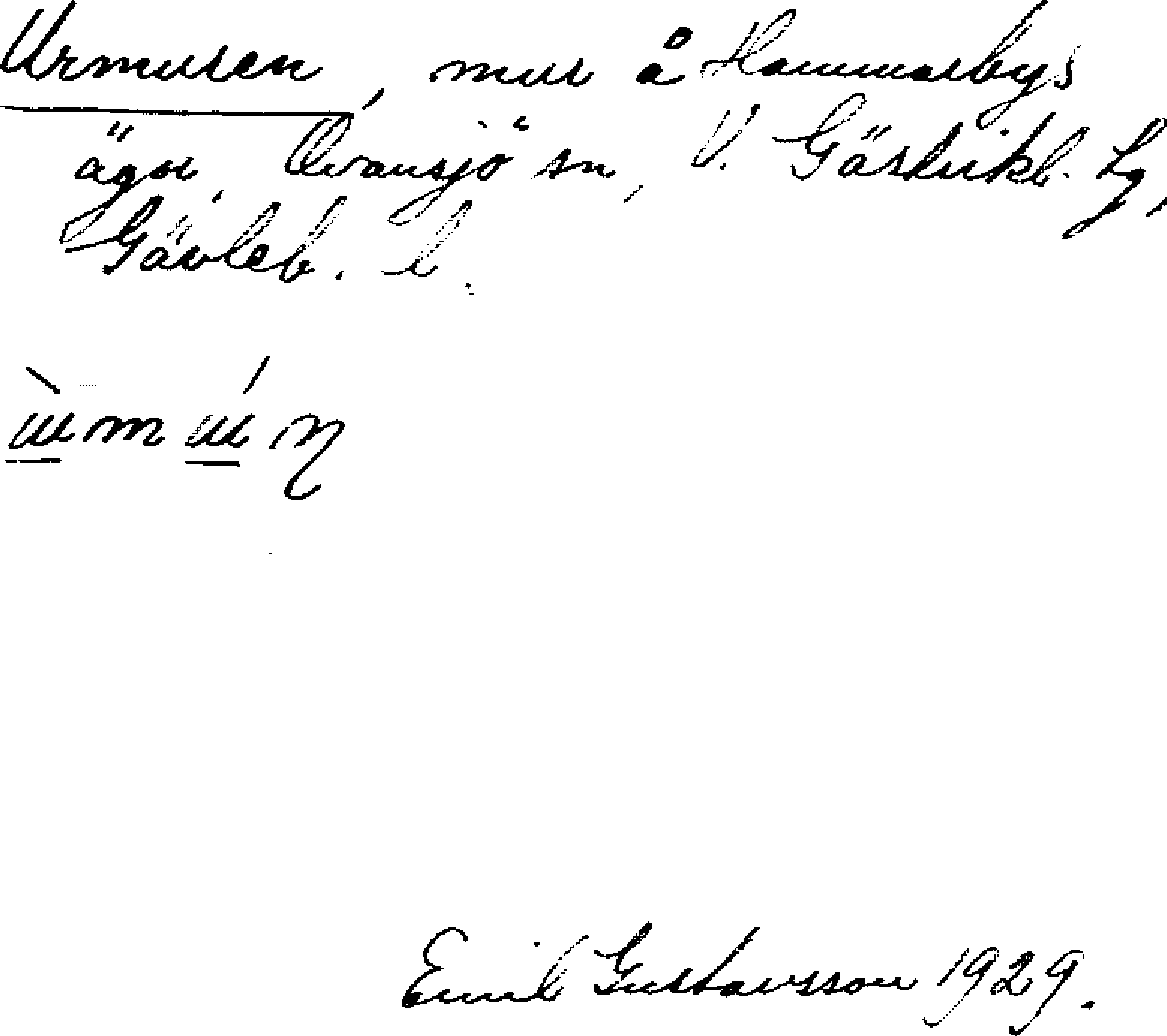 Urmuren, mur å Hammarbys
ägor, Ovansjö sn, V. Gästrikl. tg,
Gävleb. l.
Emil Gustavsson 1929.